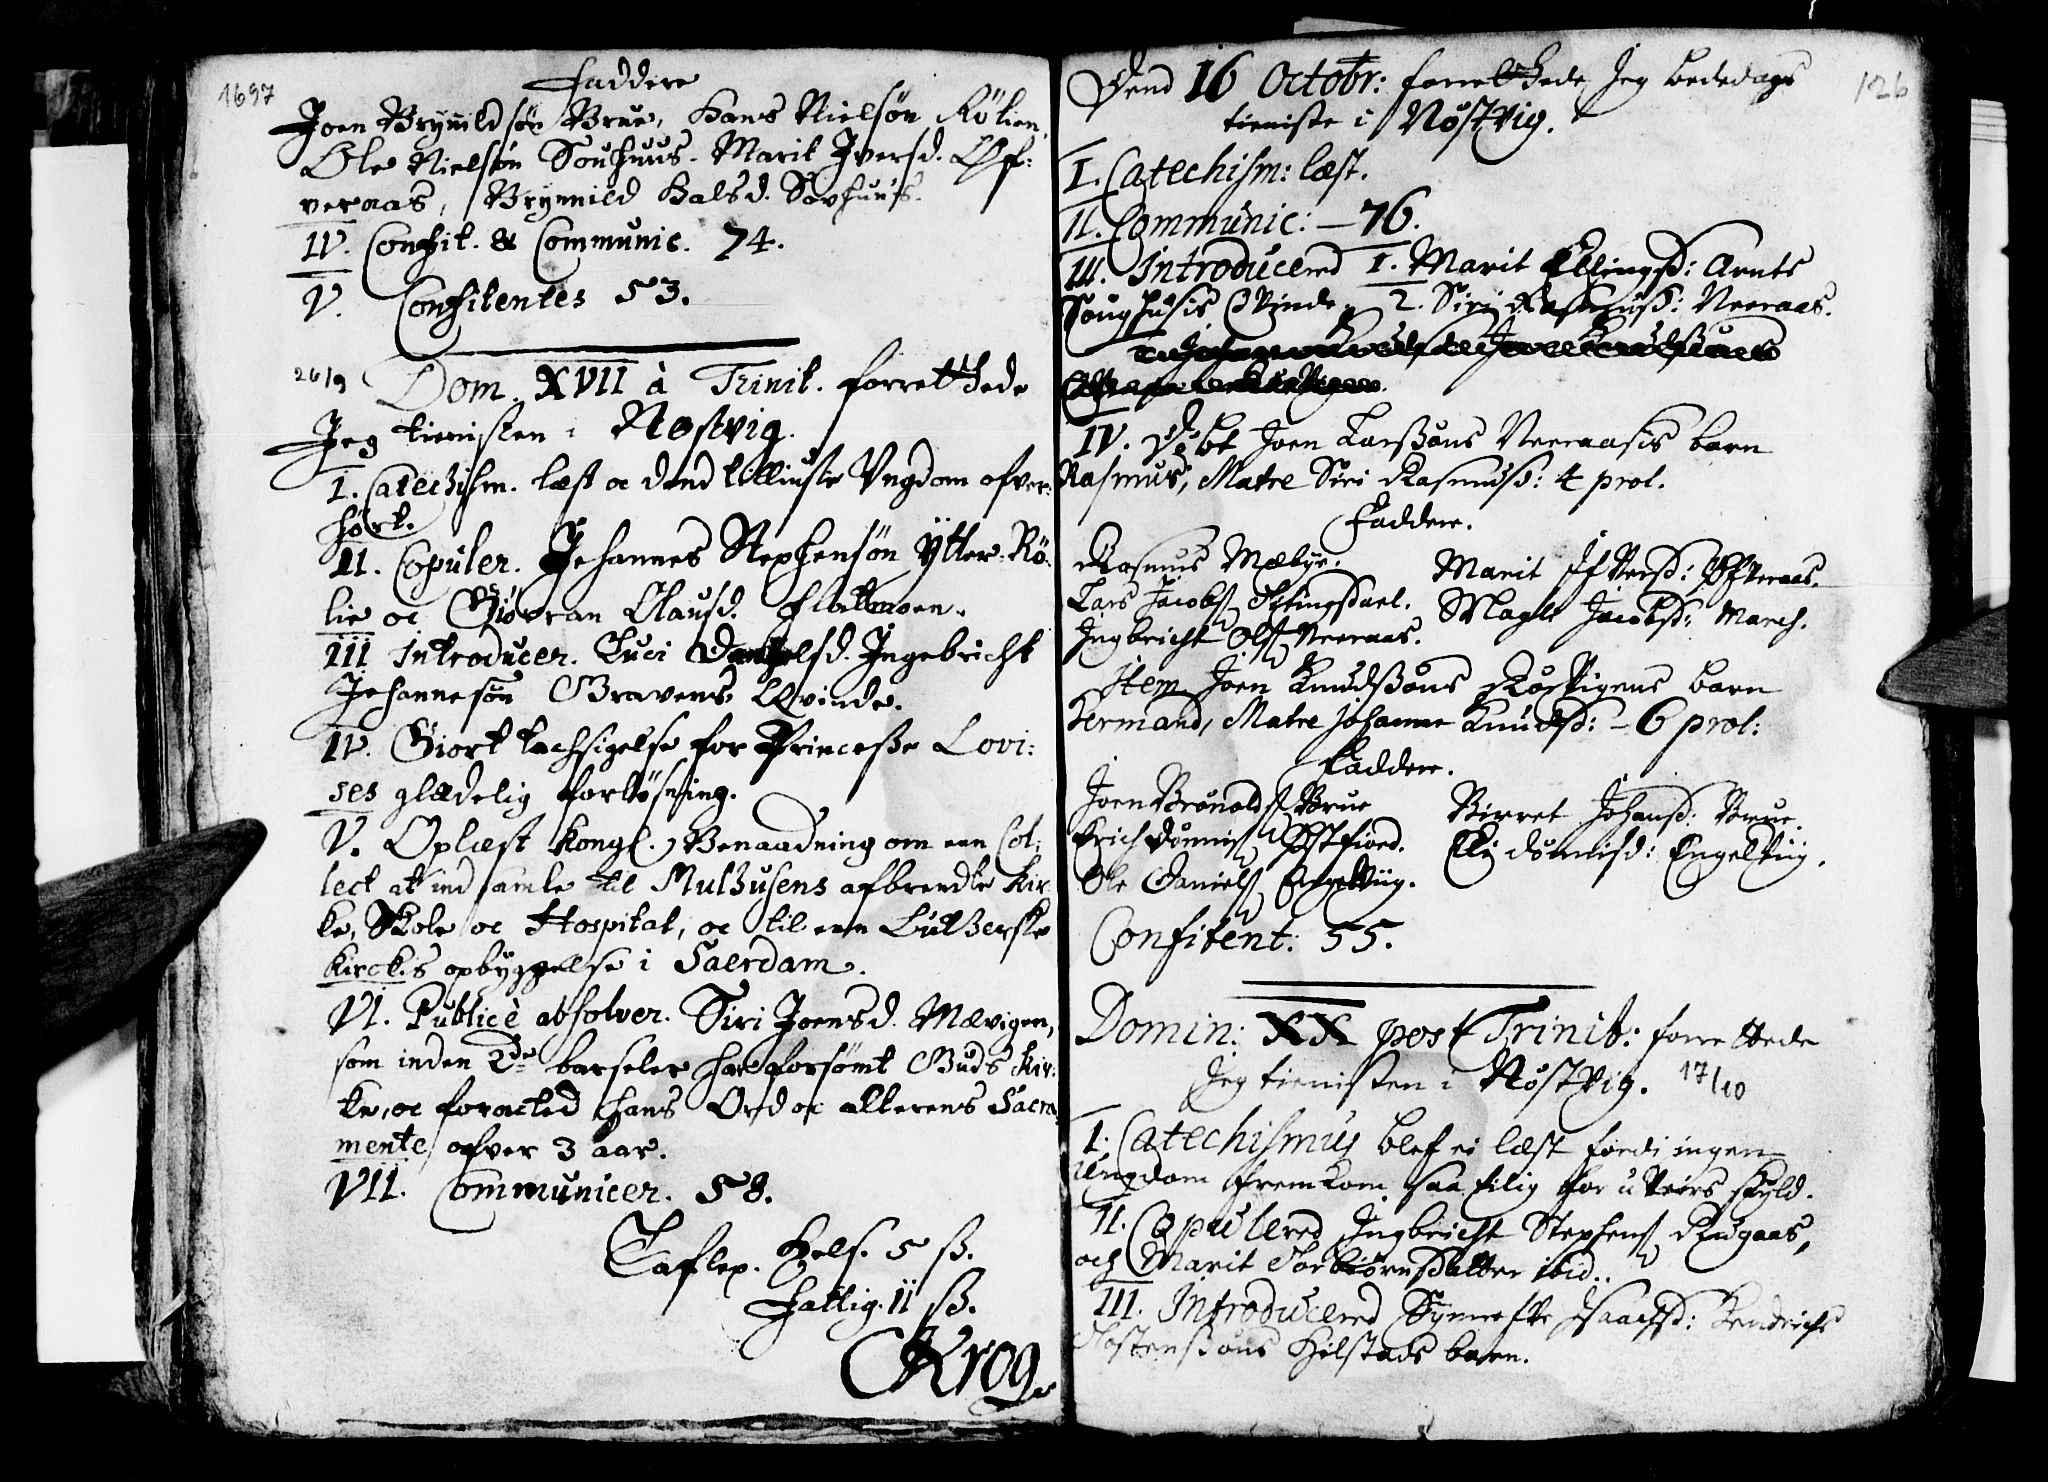 1697
Faddere
Joen Brynild søn Brue, Hans Nielsøn Rølien,
Ole Nielsøn Souhuus. Marit Iversd. Øf-
veraas, Brynnild Halsd. Sovhuus.
IV. Confit. & Communic. 74.
V. Confitentes 53.
26/9 Dom. XVII à Trinit. forrettede
Jeg tienisten i Nøstvig.
I. Catechism. læst oc dend tilliuste Ungdom ofver-
hørt.
II. Copuler. Johannes Stephensøn Ytter-Rö-
lie oc Giøran Olausd. Flatmoen.
III Introducer. Luci Danielsd. Ingebricht
Johannesøn Gravens Qvinde.
IV. Giort tachsigelse for Princesse Lovi-
ses glædelig forløsning.
V. Oplæst Kongl. Benaadning om een Col-
lect at ind samle til Mulhusens afbrendte Kir-
ke, Skole oc Hospital, oc til een Lutherske
Kirckes opbyggelse i Saerdam.
VI. Publicè absolver. Siri Joensd. Mævigen,
som inden 2de barseler har forsømt Guds Kir-
ke, oc foracted hans Ord oc alterens Sacra-
mente ofver 3 aar.
VII. Communicer. 58.
Taflep. Hels. 5 ß.
Fattig. 11 ß.
Krog
126
Dend 16 Octobr: forrettede Jeg bededags
tieniste i Nøstvig.
I. Catechism: læst.
II. Communic: - 76.
III. Introducered 1. Marit Ellingsd: Arnts
Soughusis Qvinde, 2. Siri Rasmusd: Neeraas.
IV. Døbt Joen Larssøns Neeraasis barn
Rasmus, Matre Siri Rasmusd: 4 prol.
Faddere.
Rasmus Mæbye. Marit Ifversd: Øfveraas.
Lars Jacobs. Istingsdael. Magle Jacobsd: March.
Ingbricht Ols. Neeraas.
Item Joen Knudssøns Rødvigens barn
Hermand, Matre Johanne Knudsd: - 6 prol:
Faddere.
Joen Brønolds. Brue Birret Johansd: Brue.
Erich Dønnis. Østfiord. Eli Dønnisd: Engelviig.
Ole Daniels. Engelviig.
Confitent: 55.
Domin: XX post Trinit: forrettede
Jeg tienisten i Nøstvig. 17/10
I. Catechismus blef ei læst fordi ingen
Ungdom fremkom saa tilig for uveirs skyld.
II. Copulered Ingbricht Stephens. Rugaas,
och Marit Torbiørnsdatter ibid.
III. Introducered Synnefve Isaachsd: Hendrichs
Tostenssøns Hilstads barn.